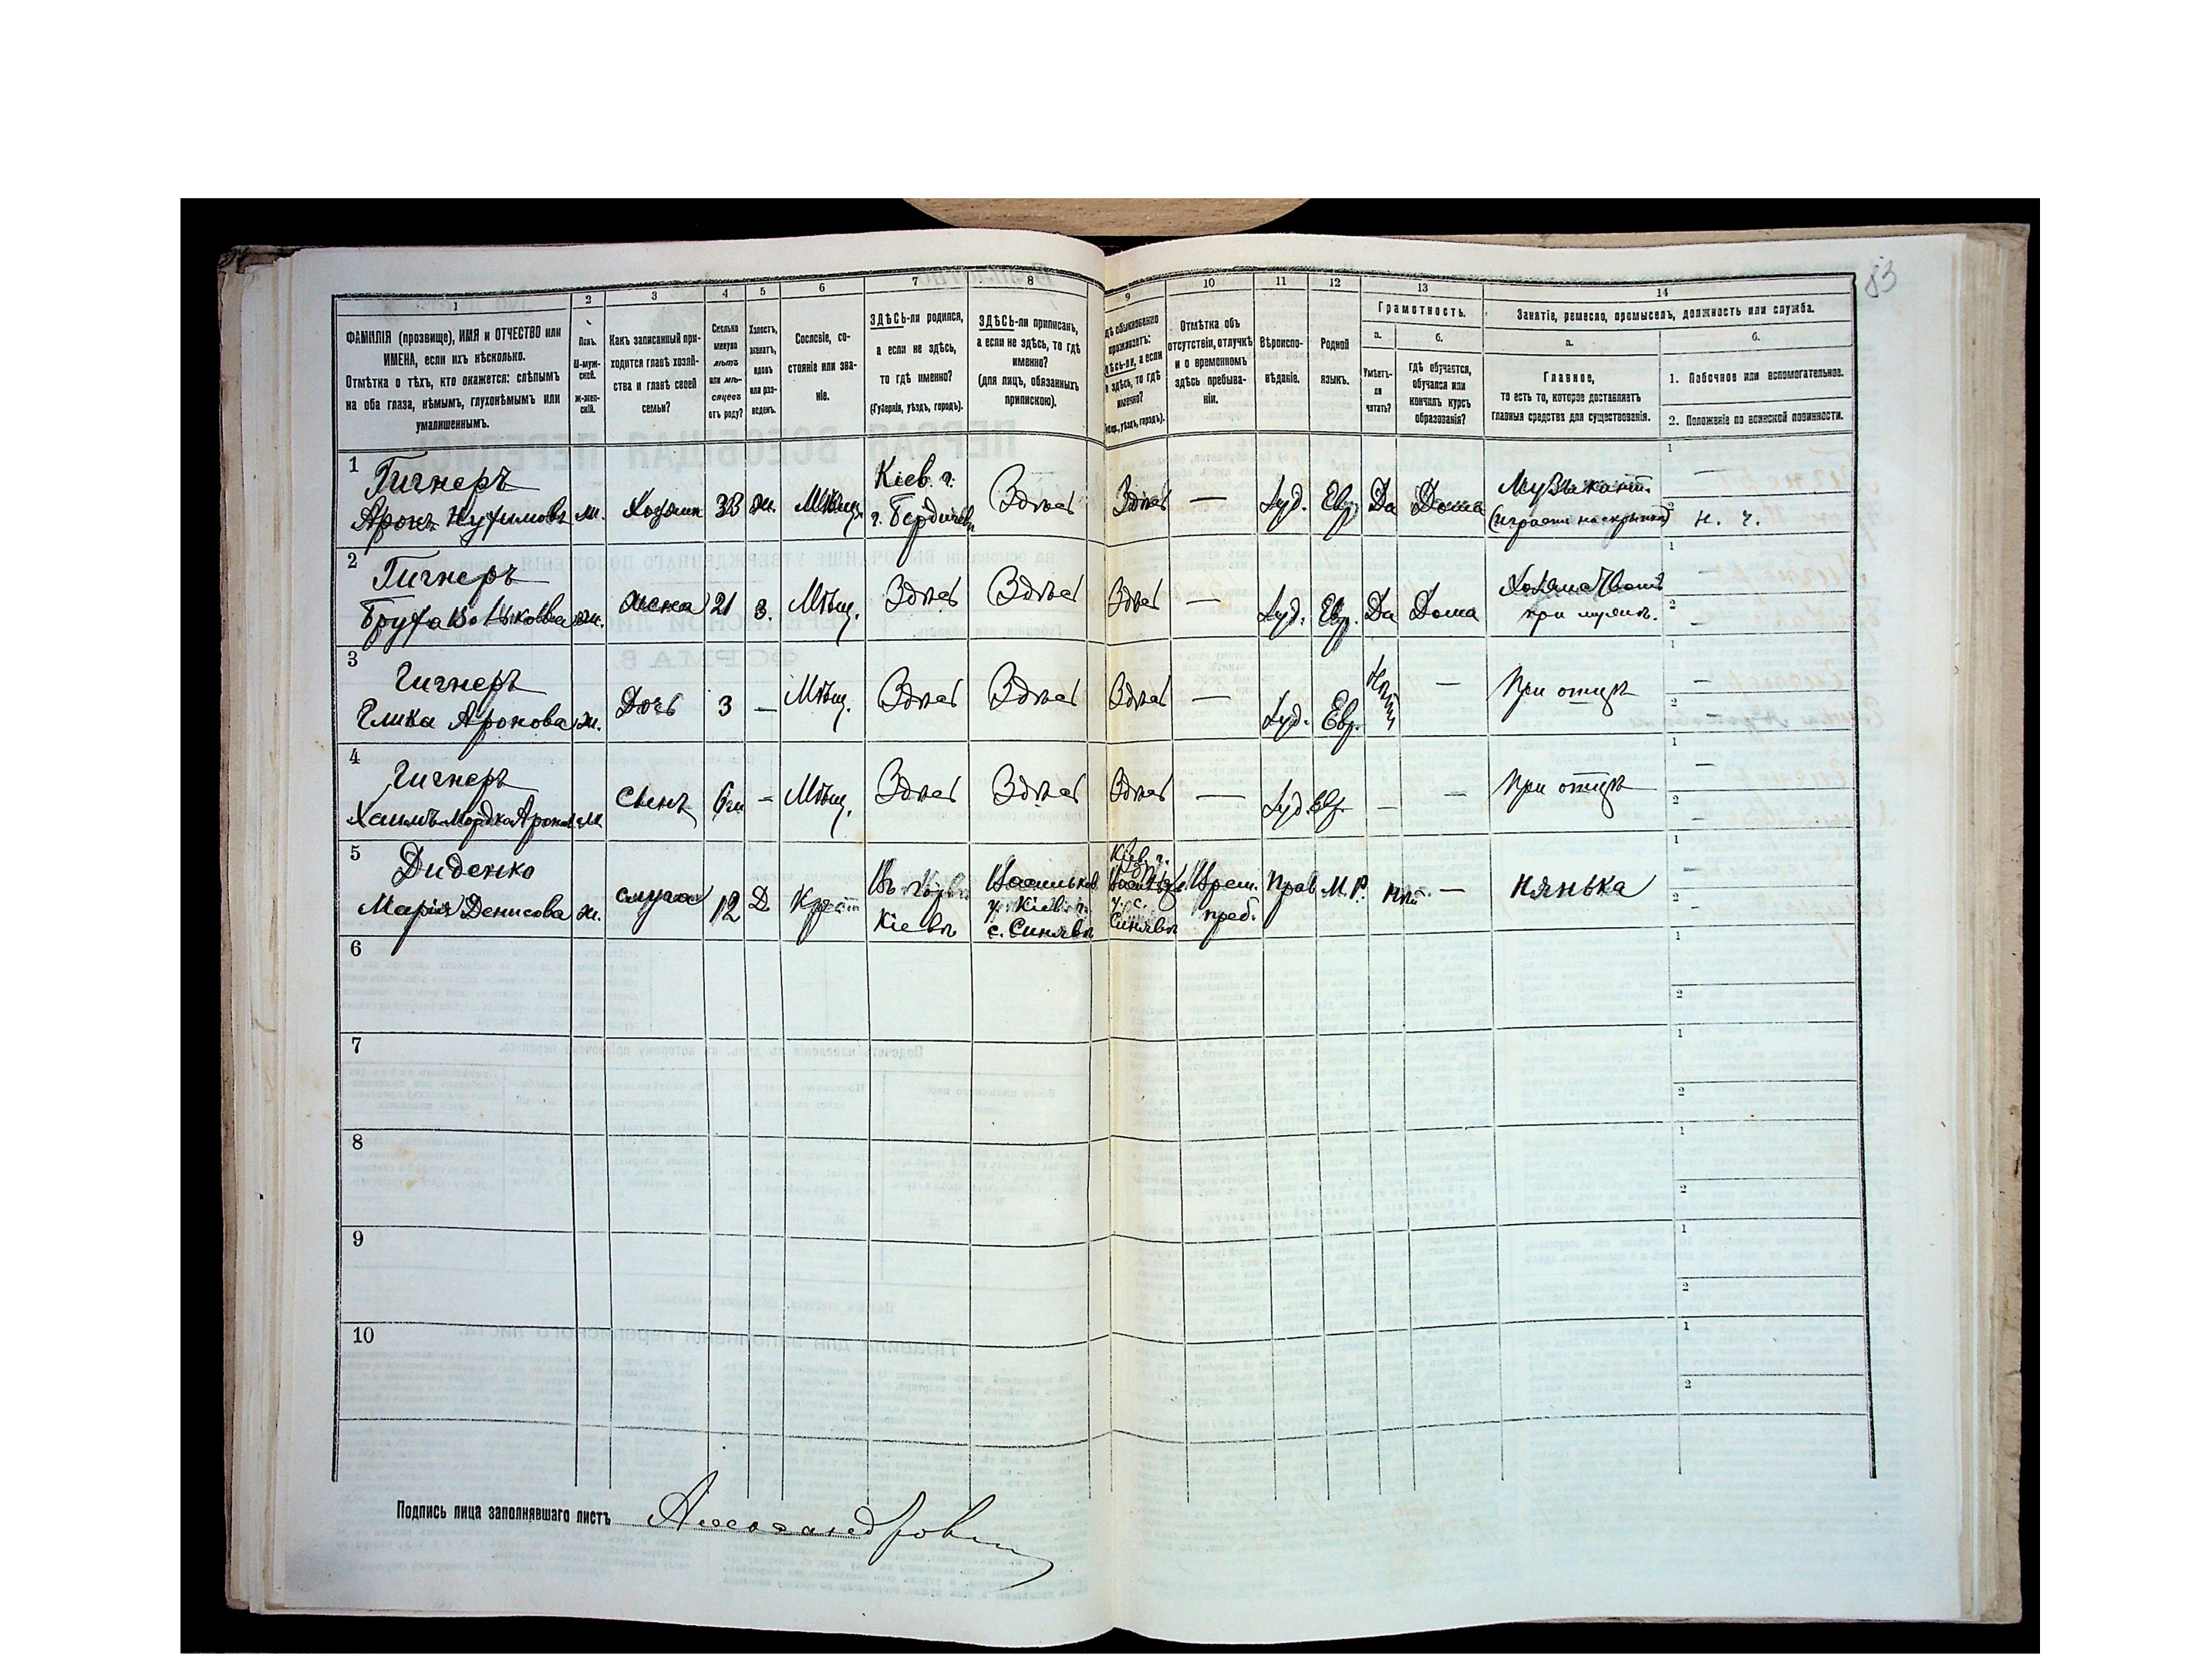 83
1 2 3 4 5 6 7 8 9 10 11 12 13 14
ФАМИЛІЯ (прозвище), ИМЯ и ОТЧЕСТВО или
ИМЕНА, если ихъ нѣсколько.
Отмѣтка о тѣхъ, кто окажется: слѣпымъ
на оба глаза, нѣмымъ, глухонѣмымъ или
умалишеннымъ.
Полъ.
М-муж-
ской.
ж-жен-
скій.
Какъ записанный при-
ходится главѣ хозяй-
ства и главѣ своей
семьи?
Сколько
минуло
лѣтъ
или мѣ-
сяцевъ
отъ роду?
Холостъ,
женатъ,
вдовъ
или раз-
веденъ.
Сословіе, со-
стояніе или зва-
ніе.
ЗДѢСЬ-ли родился,
а если не здѣсь,
то гдѣ именно?
(Губернія, уѣздъ, городъ).
ЗДѢСЬ-ли приписанъ,
а если не здѣсь, то гдѣ
именно?
(для лицъ, обязанныхъ
припискою).
обыкновенно
проживаетъ:
здѣсь-ли, а если
не здѣсь, то гдѣ
именно?
уѣздъ, городъ).
Отмѣтка объ
отсутствіи, отлучкѣ
и о временномъ
здѣсь пребыва-
ніи.
Вѣроиспо-
вѣданіе.
Родной
языкъ.
Грамотность.
а. б.
Умѣетъ-
ли
читать?
гдѣ обучается,
обучался или
кончилъ курсъ
образованія?
Занятіе, ремесло, промыселъ, должность или служба.
а. б.
Главное,
то есть то, которое доставляетъ
главныя средства для существованія.
1. Побочное или вспомогательное.
2. Положеніе по воинской повинности.
1 Гигнеръ
Аронъ Нухимовъ м. Хозяин 33 ж. Мѣщ. Кіев. г. г. Бердичевъ Здѣсь Здѣсь — Іуд. Евр. Да Дома Музыкант. (играет на скрипкѣ) 1 — 2 н. ч.
2 Гигнеръ
Бруха Вольковна ж. жена 21 з. Мѣщ. Здѣсь Здѣсь Здѣсь — Іуд. Евр. Да Дома при мужѣ. 1 — 2 —
3 Гигнеръ
Глика Аронова ж. Дочь 3 — Мѣщ. Здѣсь Здѣсь Здѣсь — Іуд. Евр. Нѣтъ — При отцѣ 1 — 2 —
4 Гигнеръ
Хаимъ-Мордко Аронов м Сынъ 6 м — Мѣщ. Здѣсь Здѣсь Здѣсь — Іуд. Евр. — — При отцѣ 1 — 2 —
5 Диденко
Марія Денисова ж. слуга 12 Д Крест Въ гор. Кіевѣ Васильков. у. Кіев. г. с. Синява Кіев. г. у. с. Синява Врем. преб. Прав М.Р. нѣт. — Нянька 1 — 2 —
6 1 2
7 1 2
8 1 2
9 1 2
10 1 2
Подпись лица заполнявшаго листъ